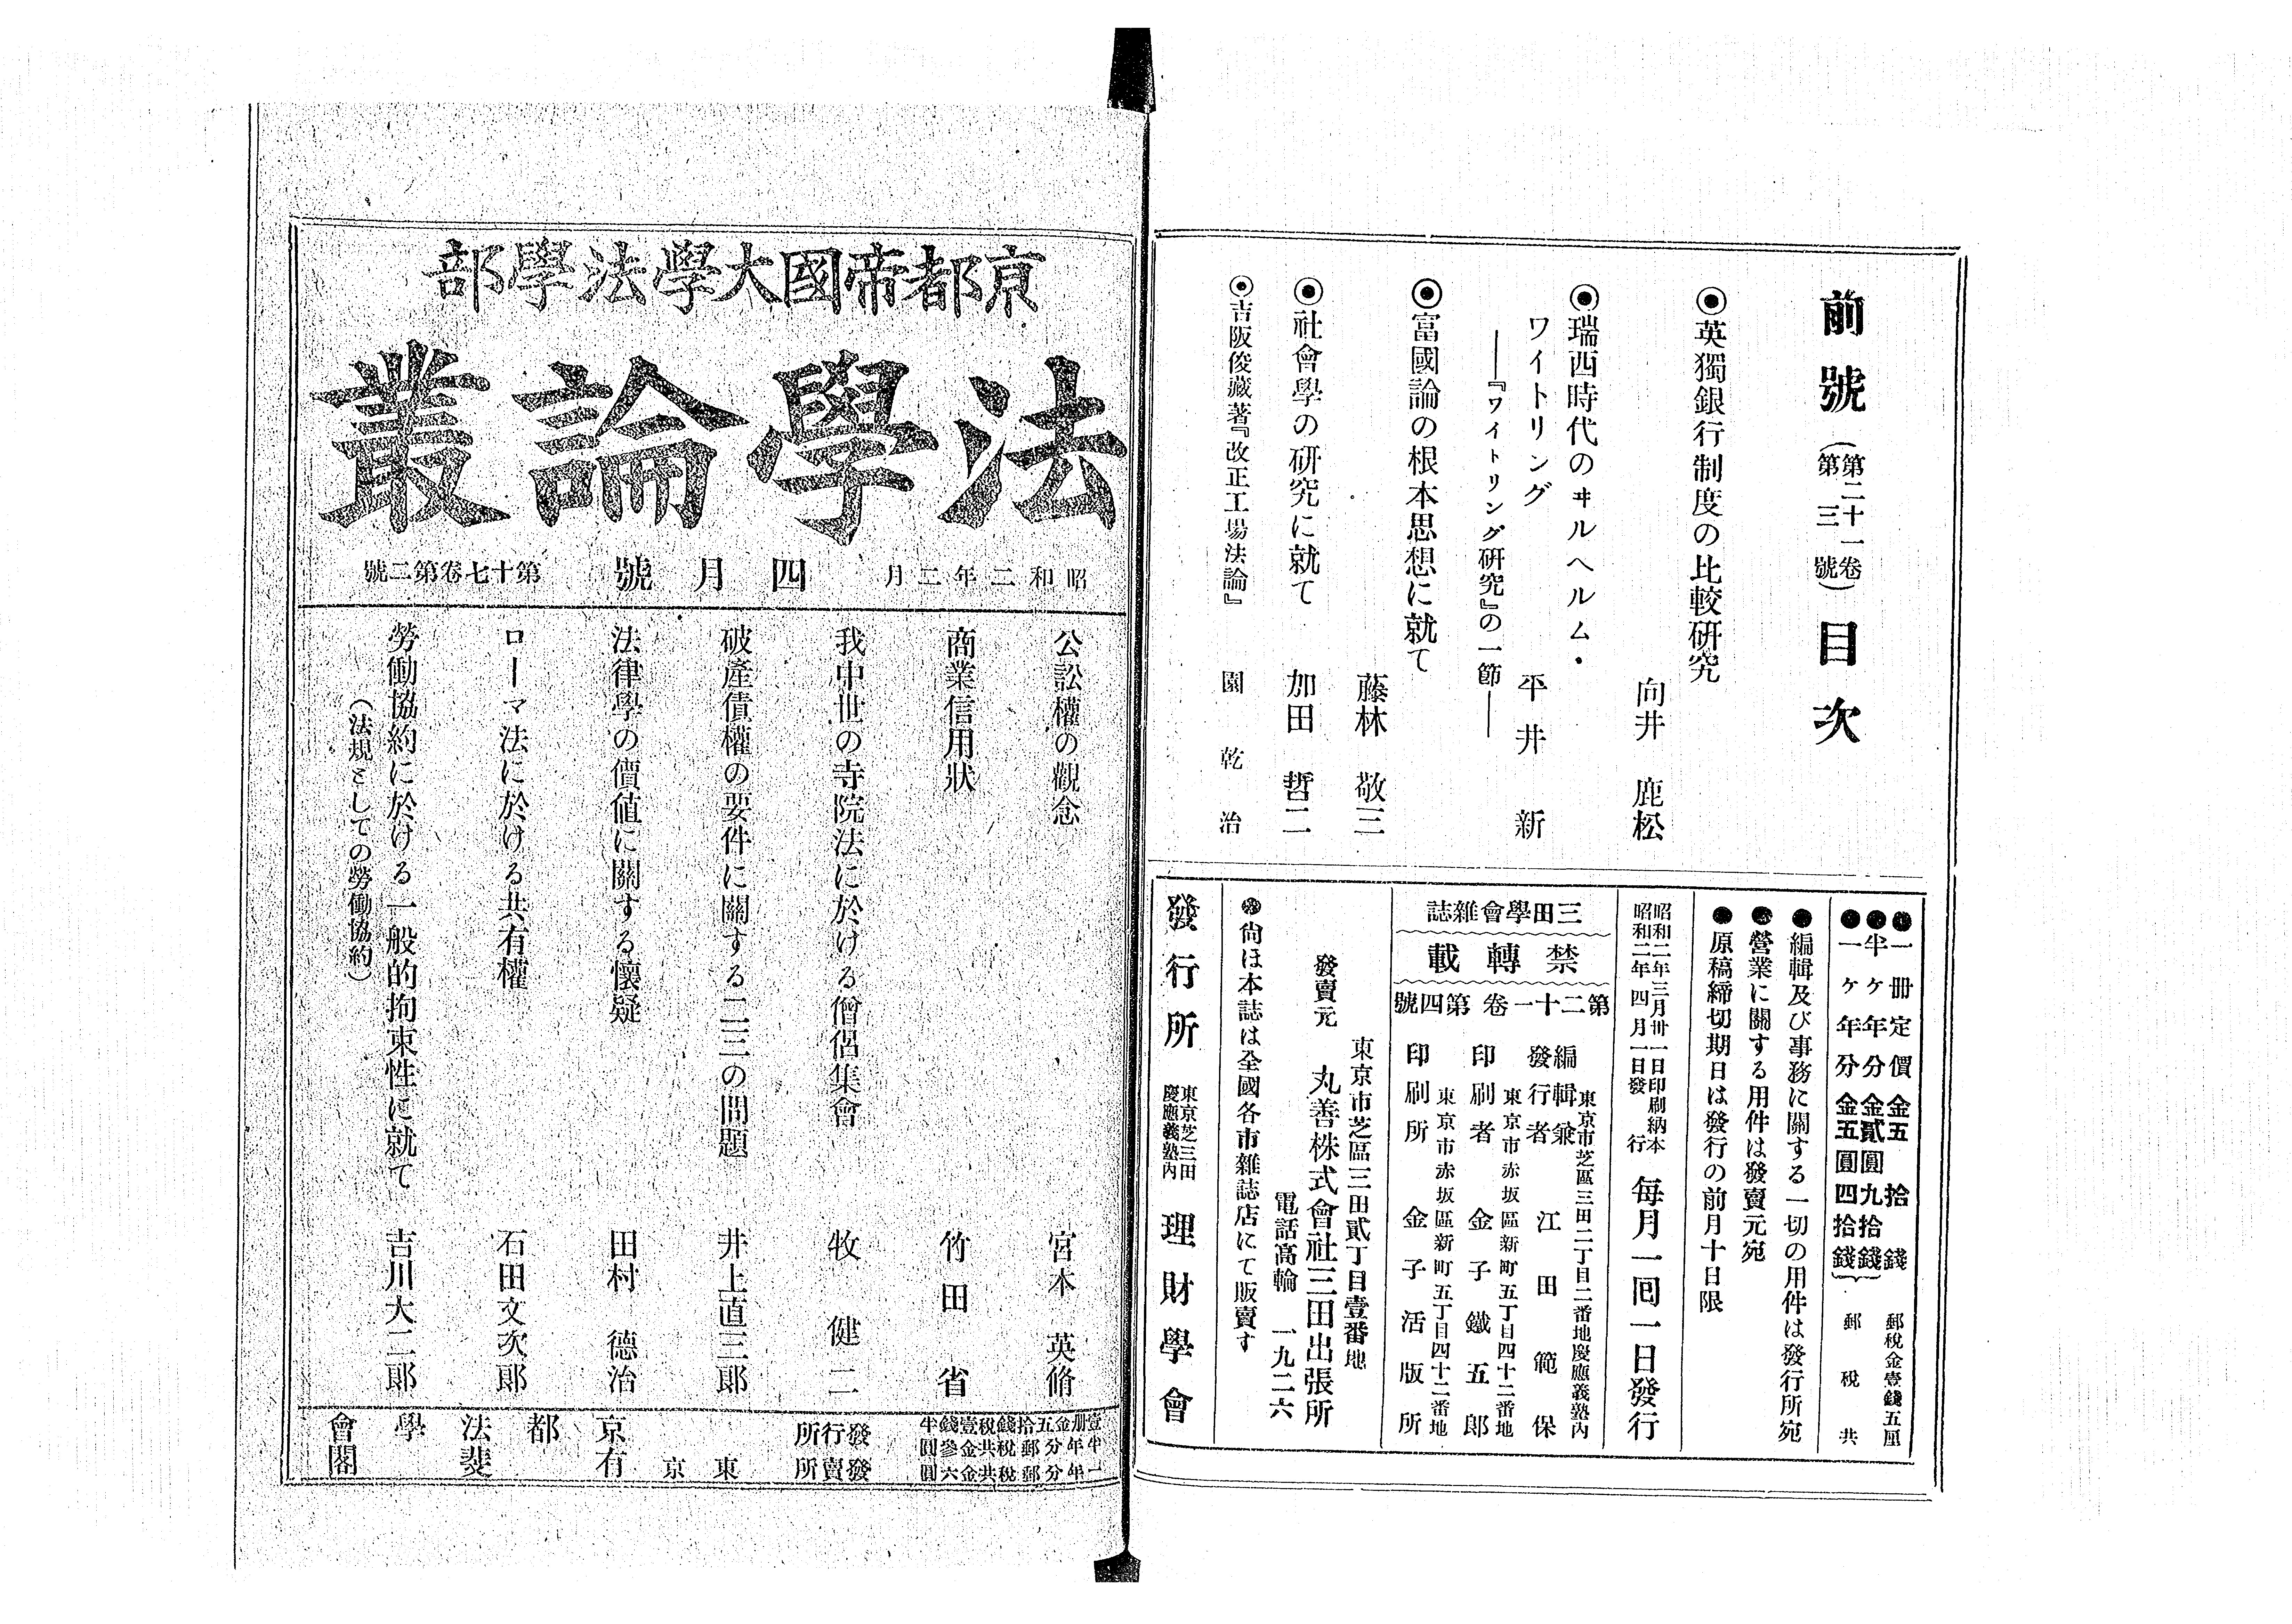 前號(第二十一卷第三號)目次
◉英獨銀行制度の比較研究
向井鹿松
◉瑞西時代のヰルヘルム・
ワイトリング
平井新
――『ワイトリング研究』の一節――
◉富國論の根本思想に就て
藤林敬三
◉社會學の研究に就て
加田哲二
◉吉阪俊藏著『改正工場法論』
園乾治
●一册定價金五拾錢 郵稅金壹錢五厘
●半ケ年分金貳圓九拾錢
●一ケ年分金五圓四拾錢
郵稅共
●編輯及び事務に關する一切の用件は發行所宛
●營業に關する用件は發賣元宛
●原稿締切期日は發行の前月十日限
昭和二年三月卅一日印刷納本
昭和二年四月一日發行
每月一回一日發行
三田學會雜誌
禁轉載
第二十一卷第四號
東京市芝區三田二丁目二番地慶應義塾內
編輯兼發行者 江田範保
東京市赤坂區新町五丁目四十二番地
印刷者 金子鐵五郎
東京市赤坂區新町五丁目四十二番地
印刷所 金子活版所
東京市芝區三田貳丁目壹番地
發賣元 丸善株式會社三田出張所
電話高輪 一九二六
●尙ほ本誌は全國各市雜誌店にて販賣す
發行所 東京芝三田慶應義塾內 理財學會
京都帝國大學法學部
法學論叢
昭和二年二月
四月號
第十七卷第二號
公訟權の觀念 宮本英脩
商業信用狀 竹田省
我中世の寺院法に於ける僧侶集會 牧健二
破產債權の要件に關する二三の問題 井上直三郞
法律學の價値に關する懷疑 田村德治
ローマ法に於ける共有權 石田文次郞
勞働協約に於ける一般的拘束性に就て 吉川大二郞
(法規としての勞働協約)
壹册金五拾錢稅壹錢半
半年分郵稅共金參圓
一年分郵稅共金六圓
發行所 京都法學會
發賣所 東京有斐閣